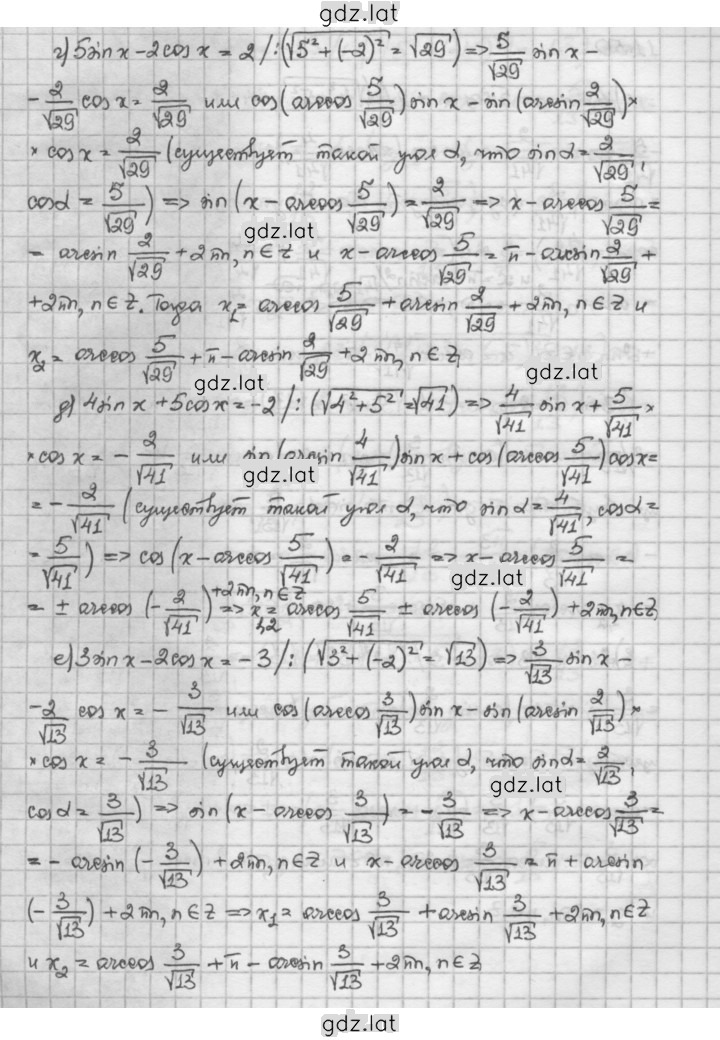 gdz.lat
г) 5sin x - 2cos x = 2 /:(√(5² + (-2)²) = √29) => 5/√29 sin x -
- 2/√29 cos x = 2/√29 или cos(arccos 5/√29) sin x - sin(arcsin 2/√29) ×
× cos x = 2/√29 (существует такой угол α, что sin α = 2/√29,
cos α = 5/√29) => sin(x - arccos 5/√29) = 2/√29 => x - arccos 5/√29 =
gdz.lat
= arcsin 2/√29 + 2πn, n∈Z и x - arccos 5/√29 = π - arcsin 2/√29 +
+ 2πn, n∈Z. Тогда x₁ = arccos 5/√29 + arcsin 2/√29 + 2πn, n∈Z и
x₂ = arccos 5/√29 + π - arcsin 2/√29 + 2πn, n∈Z
gdz.lat gdz.lat
д) 4sin x + 5cos x = -2 /:(√(4² + 5²) = √41) => 4/√41 sin x + 5/√41 ×
× cos x = - 2/√41 или sin(arcsin 4/√41) sin x + cos(arccos 5/√41) cos x =
gdz.lat
= - 2/√41 (существует такой угол α, что sin α = 4/√41, cos α =
= 5/√41) => cos(x - arccos 5/√41) = - 2/√41 => x - arccos 5/√41 =
gdz.lat
= ± arccos(- 2/√41) + 2πn, n∈Z => x₁,₂ = arccos 5/√41 ± arccos(- 2/√41) + 2πn, n∈Z
е) 3sin x - 2cos x = -3 /:(√(3² + (-2)²) = √13) => 3/√13 sin x -
- 2/√13 cos x = - 3/√13 или cos(arccos 3/√13) sin x - sin(arcsin 2/√13) ×
× cos x = - 3/√13 (существует такой угол α, что sin α = 2/√13,
gdz.lat
cos α = 3/√13) => sin(x - arccos 3/√13) = - 3/√13 => x - arccos 3/√13 =
= - arcsin(- 3/√13) + 2πn, n∈Z и x - arccos 3/√13 = π + arcsin
(- 3/√13) + 2πn, n∈Z => x₁ = arccos 3/√13 + arcsin 3/√13 + 2πn, n∈Z
и x₂ = arccos 3/√13 + π - arcsin 3/√13 + 2πn, n∈Z
gdz.lat